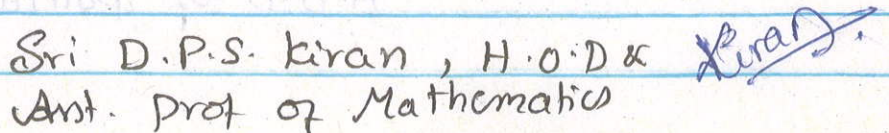 Sri D.P.S. Kiran, H.O.D & Kiran
Asst. Prof of Mathematics